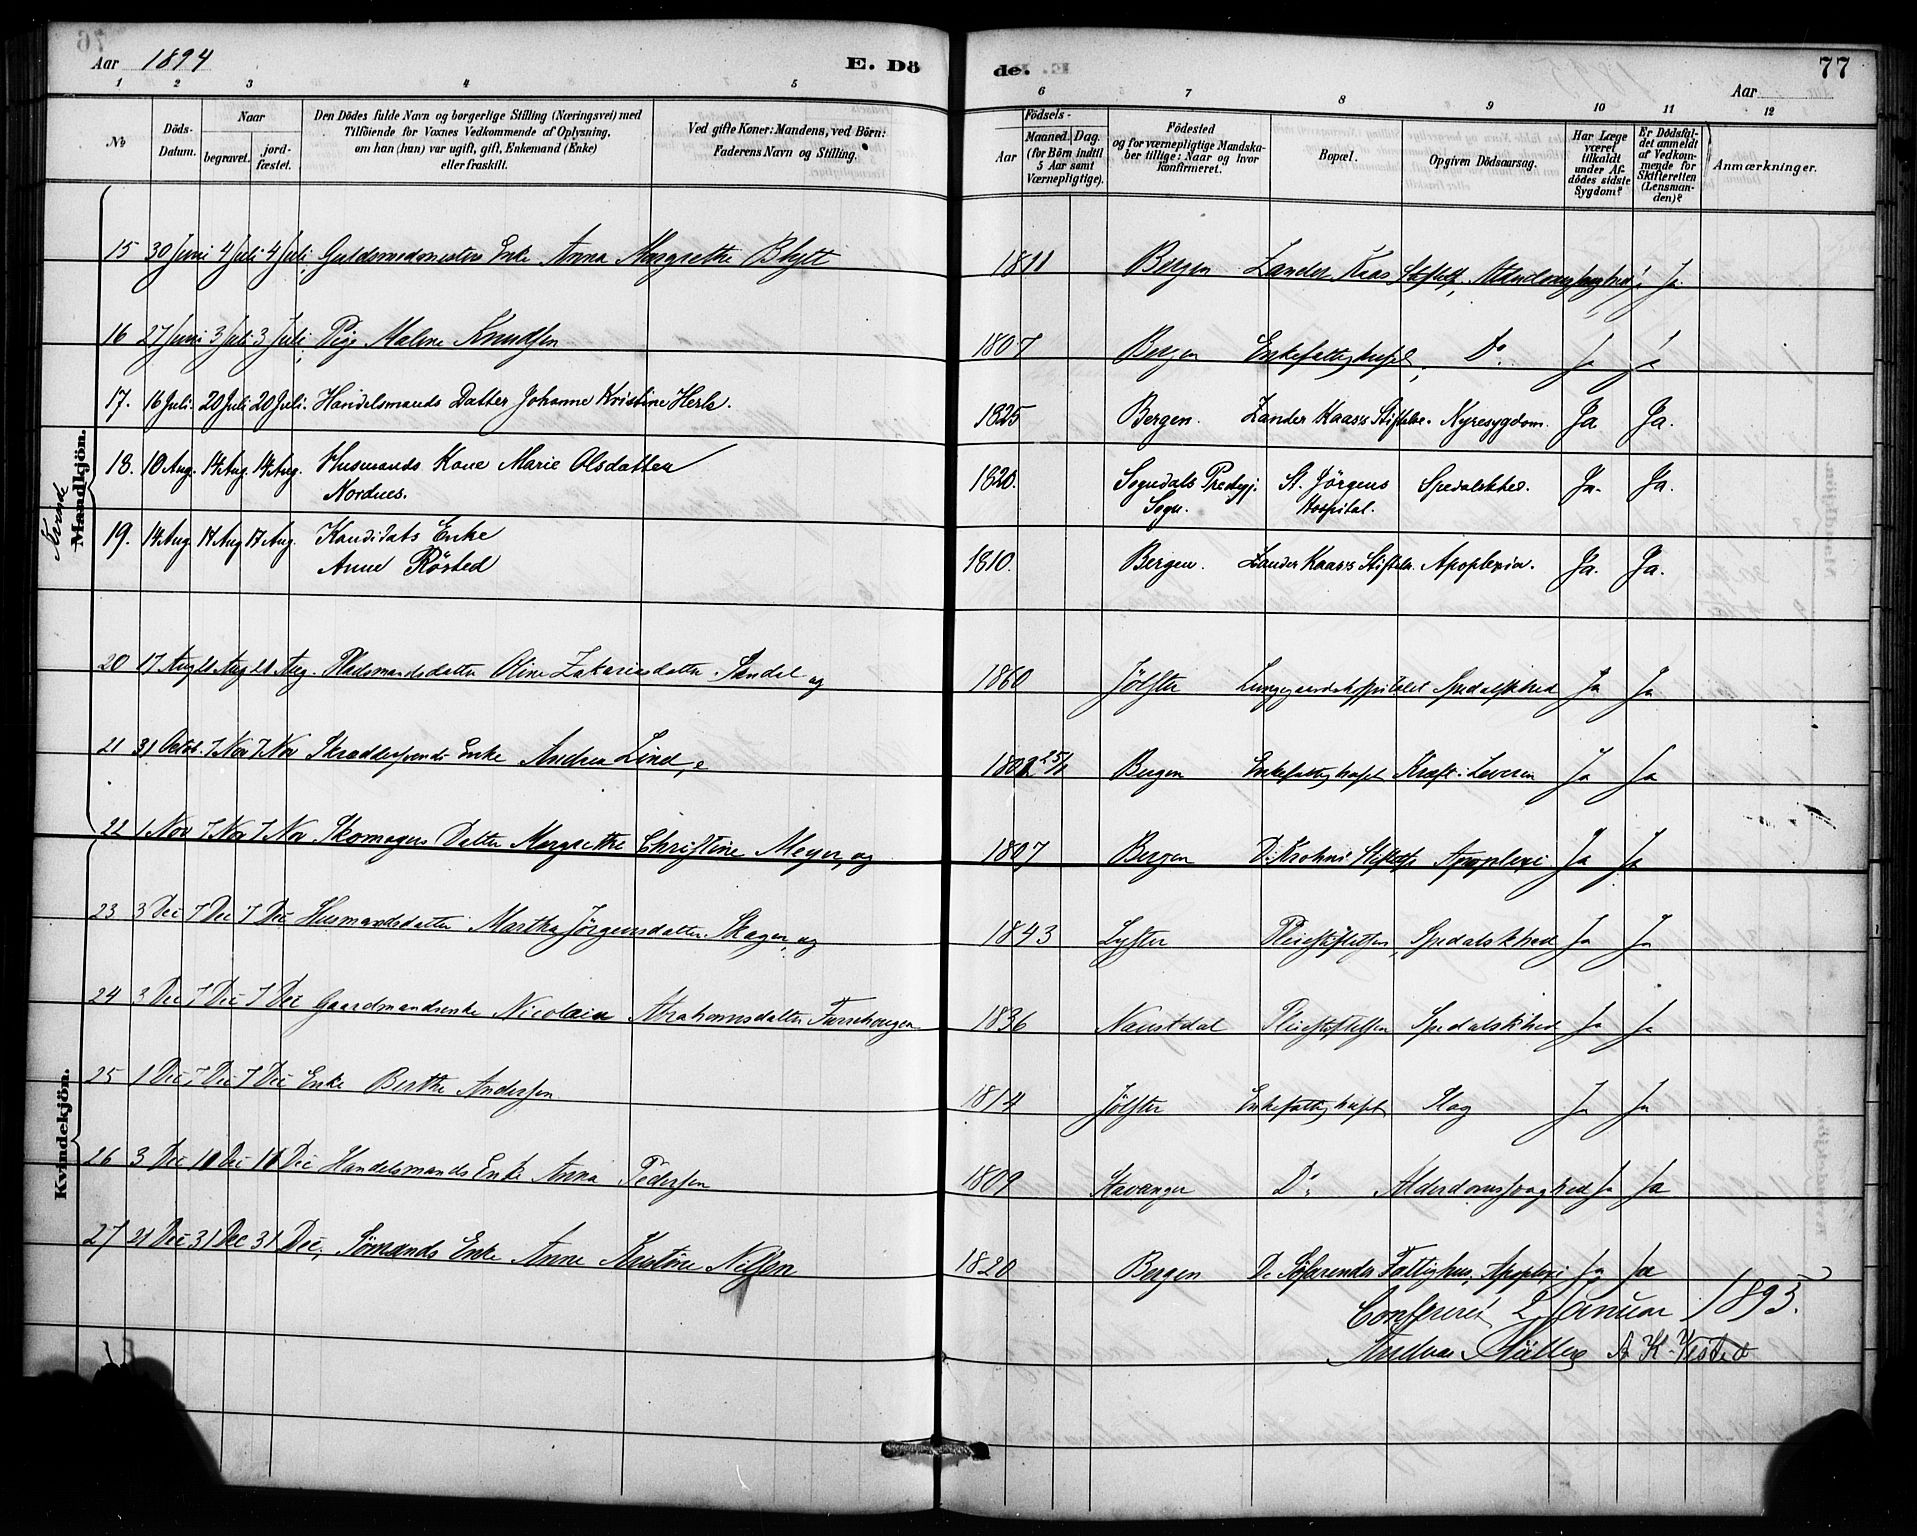 76
Aar 1894
E. Dö
de.
77
Aar
1 2 3 4 5 6 7 8 9 10 11 12
No
Döds-Datum.
Naar
begravet.
jord-fæstet.
Den Dödes fulde Navn og borgerlige Stilling (Næringsvei) med
Tilföiende for Voxnes Vedkommende af Oplysning,
om han (hun) var ugift, gift, Enkemand (Enke)
eller fraskilt.
Ved gifte Koner: Mandens, ved Börn:
Faderens Navn og Stilling.
Födsels-
Aar
Maaned. Dag.
(for Börn indtil
5 Aar samt
Værnepligtige).
Födested
og for værnepligtige Mandska-
ber tillige: Naar og hvor
konfirmeret.
Bopæl.
Opgiven Dödsaarsag.
Har Læge
været
tilkaldt
under Af-
dödes sidste
Sygdom?
Er Dödsfal-
det anmeldt
af Vedkom-
mende for
Skifteretten
(Lensman-
den)?
Anmærkninger.
Kvinde
Mandkjön.
15 30 Juni 4 Juli 4 Juli Guldsmedmesters Enke Anna Margrethe Blytt 1811 Bergen Zander Kaas Stiftelse, Ja
16 27 Juni 3 Juli 3 Juli Pige Malene Knudsen 1807 Bergen Enkefattighuset, Do Ja Ja
17. 16 Juli. 20 Juli 20 Juli. Handelsmands Datter Johanne Kristine Herle. 1825 Bergen. Zander Kaas's Stiftelse. Nyresygdom. Ja Ja.
18. 10 Aug. 14 Aug. 14 Aug. Husmands Kone Marie Olsdatter 1820. Sogndals Prestegj. St. Jörgens Spedalskhed. Ja. Ja.
Nordnes. Sogn. Hospital.
19. 14 Aug. 17 Aug 17 Aug. Kandidats Enke
Anne Rösted 1810. Bergen. Zander Kaas's Stiftelse. Apoplexia. Ja. Ja.
20 17 Aug 21 Aug 21 Aug. Pladsmandsdatter Oline Zakariasdatter Sandal ug 1860 Jölster Lungegaardshospitalet Spedalskhed Ja Ja
21 31 Octob. 7 Nov 7 Nov Skreddersvends Enke Andrea Lind, e 1802 25/1 Bergen Enkefattighuset Kræft i Leveren Ja Ja
22 1 Nov 7 Nov 7 Nov Skomagers Datter Margrethe Christine Meyer, ug 1807 Bergen D. Krohns Stiftelse Apoplexi Ja Ja
Kvindekjön.
23 3 Dec 7 Dec 7 Dec Husmandsdatter Martha Jörgensdatter Skagen, ug 1843 Lyster Pleiestiftelsen, Spedalskhed Ja Ja
24 3 Dec 7 Dec 7 Dec Gaardmandsenke Nicolaia Abrahamsdatter 1836 Naustdal Pleiestiftelsen Spedalskhed Ja Ja
25 1 Dec 7 Dec 7 Dec Enke Berthe Andersen 1814 Jölster Enkefattighuset Slag Ja Ja
26 3 Dec 10 Dec 10 Dec Handelsmands Enke Anna Pedersen 1809 Stavanger Do Alderdomssvaghed Ja Ja
27 21 Dec 31 Dec 31 Dec. Sömands Enke Anne Kristine Nilsen 1820 Bergen De Söfarendes Fattighus, Apoplexi Ja Ja
Confereret 2 Januar 1895.
Müller A K Vested